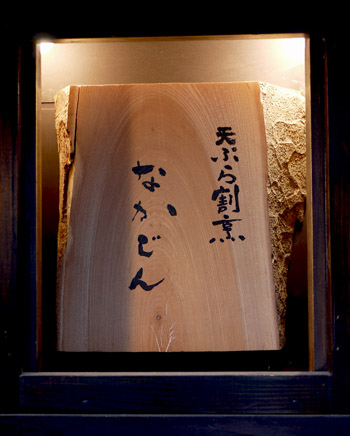 天ぷら割烹
なかじん